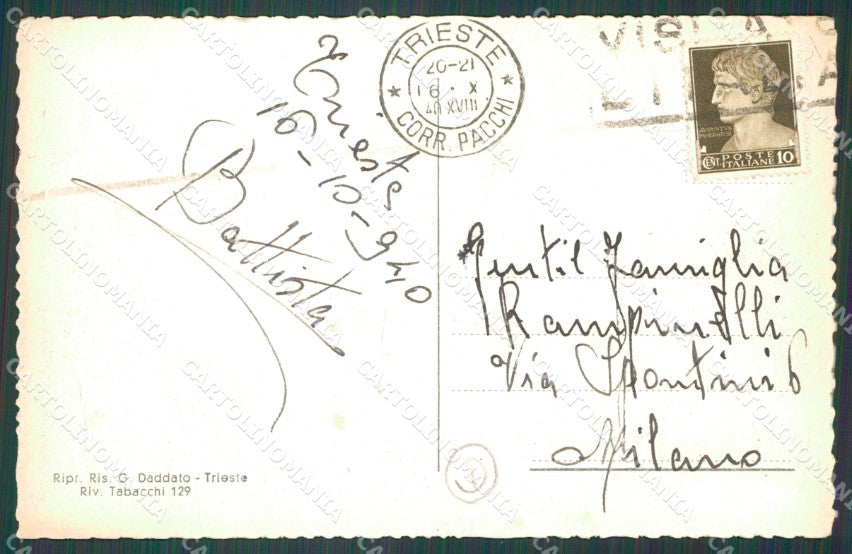 Trieste
16-10-940
Battista
TRIESTE
20-21
16 · X
40 XVIII
CORR. PACCHI
POSTE
ITALIANE
CENT. 10
Gentil Famiglia
Rampinelli
Via Spontini 6
Milano
Ripr. Ris. G. Daddato - Trieste
Riv. Tabacchi 129
CARTOLINOMANIA